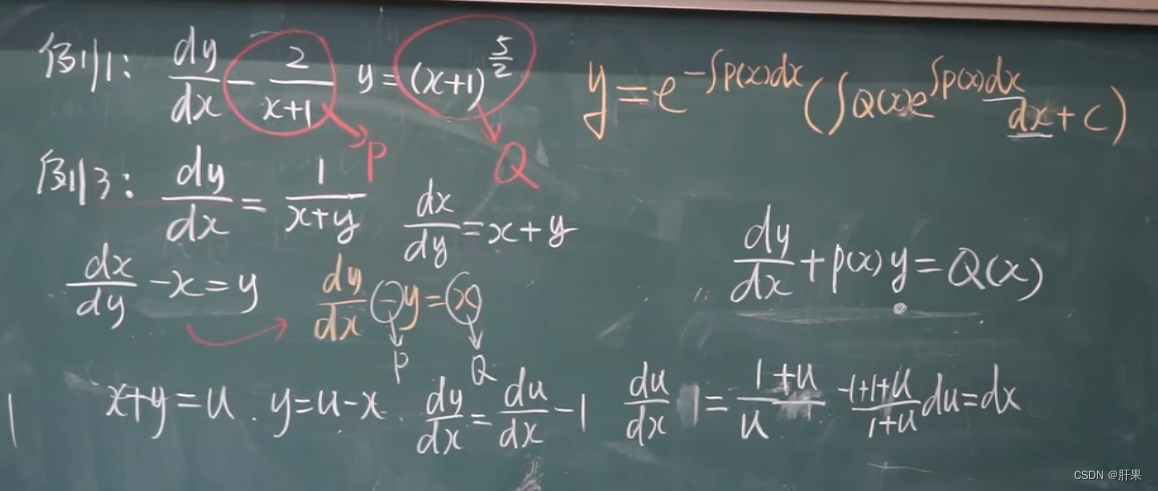 例1: dy/dx - 2/(x+1) y = (x+1)^(5/2)
P Q
y = e^(-∫p(x)dx) (∫Q(x)e^(∫p(x)dx) dx + C)
例3: dy/dx = 1/(x+y) dx/dy = x+y
dy/dx + p(x)y = Q(x)
dx/dy - x = y dy/dx - y = x
P Q
x+y = u. y = u-x. dy/dx = du/dx - 1 du/dx = (1+u)/u (-1+1+u)/(1+u) du = dx
CSDN @肝果